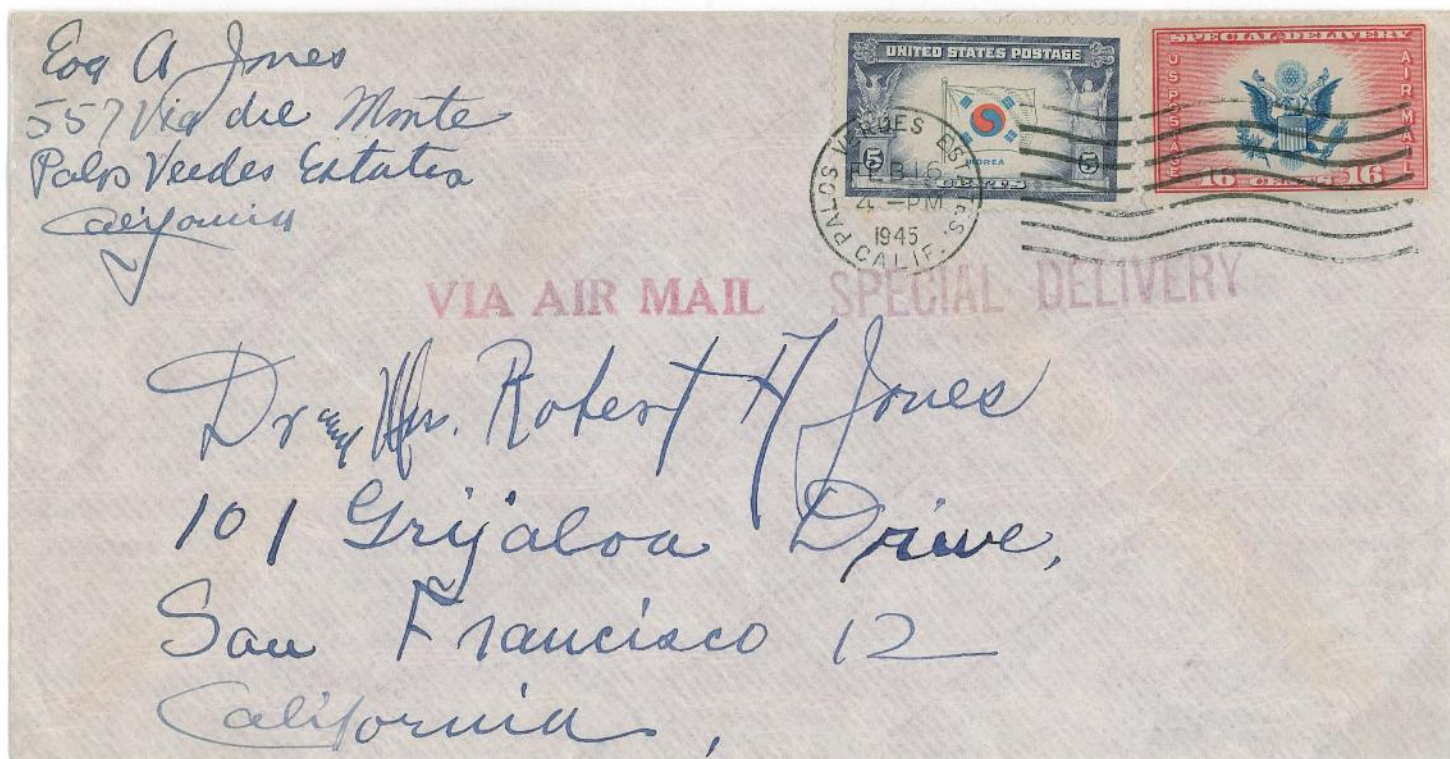 Eva A Jones
557 Via del Monte
Palos Verdes Estates
California
UNITED STATES POSTAGE
KOREA
5 5
CENTS
SPECIAL DELIVERY
U S POSTAGE
AIR MAIL
16 CENTS 16
PALOS VERDES ESTATES.
FEB 16
4 - PM
1945
CALIF.
VIA AIR MAIL SPECIAL DELIVERY
Dr and Mrs. Robert H Jones
101 Grijalva Drive,
San Francisco 12
California,